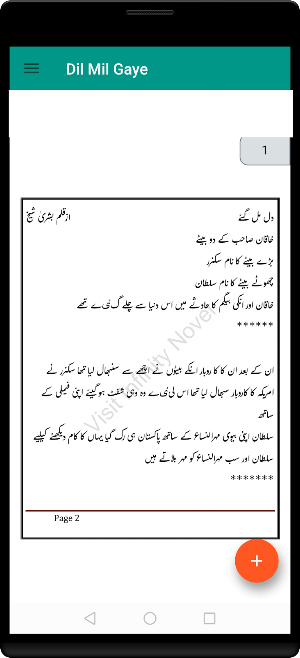 Dil Mil Gaye
1
دل مل گئے
ازقلم بشریٰ شیخ
خاقان صاحب کے دو بیٹے
بڑے بیٹے کا نام سکندر
چھوٹے بیٹے کا نام سلطان
خاقان اور انکی بیگم کا حادثے میں اس دنیا سے چلے گۓ تھے
******
ان کے بعد ان کا کاروبار انکے بیٹوں نے اچھے سے سنبھال لیا تھا سکندر نے
امریکہ کا کاروبار سبھال لیا تھا اس لیۓ وہ وہی شفٹ ہوگیئے اپنی فیملی کے
ساتھ
سلطان اپنی بیوی مہرالنساء کے ساتھ پاکستان ہی رک گیا یہاں کا کام دیکھنے کیلیے
سلطان اور سب مہرالنساء کو مہر بلاتے ہیں
*******
Visit Infinity Novel
Page 2
+